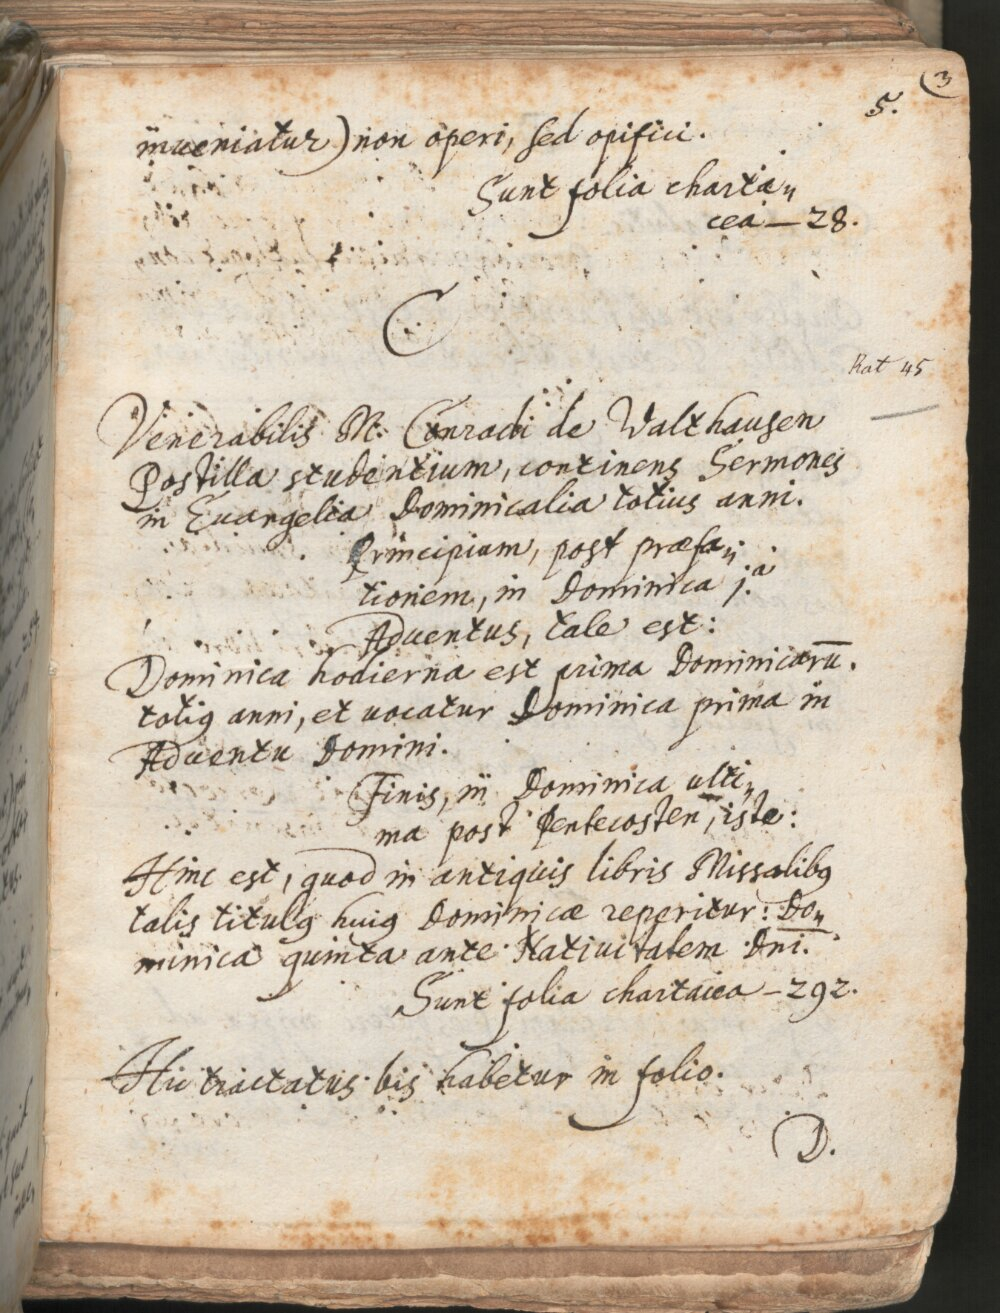 3
5.
inveniatur) non operi, sed opifici.
Sunt folia charta„
cea — 28.
C
Rat 45
Venerabilis M. Conradi de Walthausen
Postilla studentium, continens Sermones
in Euangelia Dominicalia totius anni.
Principium, post præfa„
tionem, in Dominica j.ª
Aduentus, tale est:
Dominica hodierna est prima Dominicarū.
totiꝰ anni, et uocatur Dominica prima in
Aduentu Domini.
Finis, in Dominica ulti„
ma post Pentecosten, iste:
Hinc est, quod in antiquis libris Missalibꝰ
talis titulꝰ huiꝰ Dominicæ reperitur: Do„
minica quinta ante Natiuitatem Dni.
Sunt folia chartacea — 292.
Hic tractatus bis habetur in folio.
D.